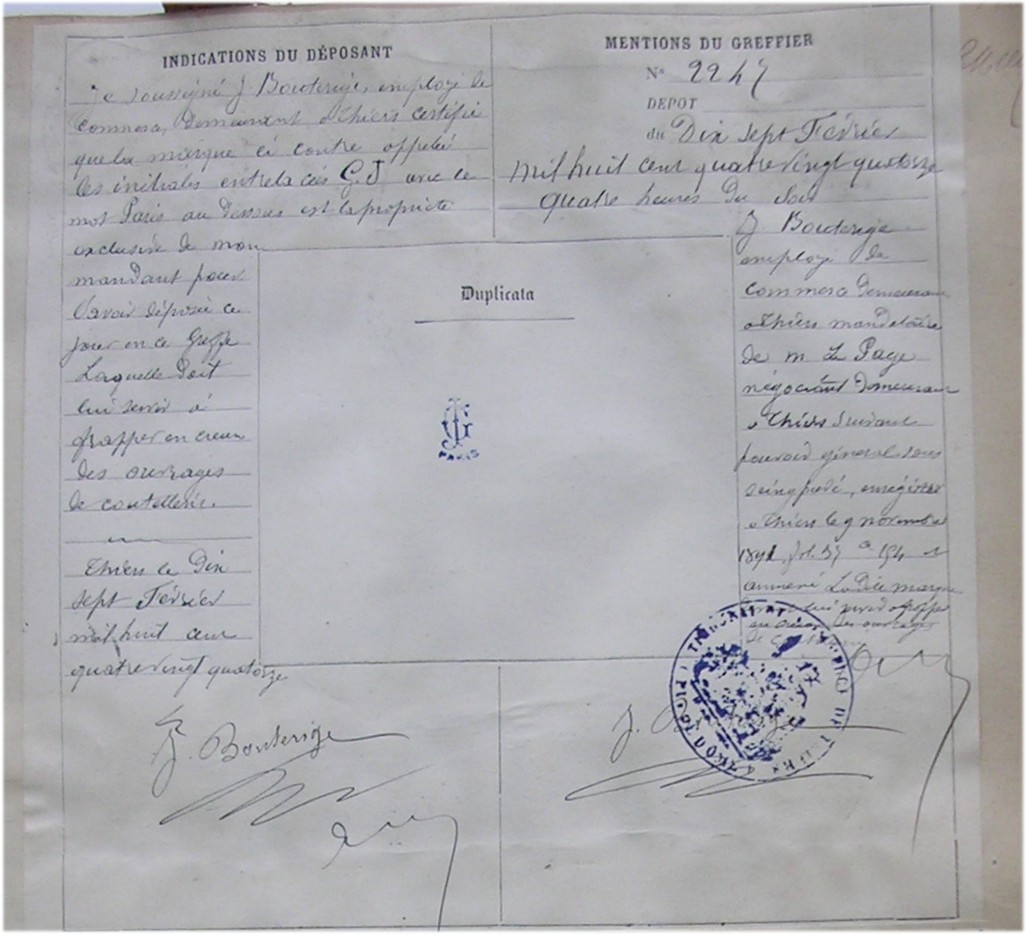 INDICATIONS DU DÉPOSANT
Je soussigné J Bouterige, employé de
commerce, demeurant à Thiers certifie
que la marque ci contre appelée
les initiales entrelacées G.J avec le
mot Paris au dessus est la propriété
exclusive de mon
mandant pour
l'avoir déposée ce
jour en ce Greffe
Laquelle doit
lui servir à
frapper en creux
des ouvrages
de coutellerie.
Thiers le Dix
sept Février
mil huit cent
quatre vingt quatorze
J. Bouterige
MENTIONS DU GREFFIER
N° 2247
DEPOT
du Dix sept Février
mil huit cent quatre vingt quatorze
quatre heures du Soir
J Bouterige
employé de
commerce demeurant
à Thiers mandataire
de M Le Page
négociant demeurant
à Thiers suivant
pouvoir général sous
seing privé, enregistré
à Thiers le 9 novembre
1891, fol. 37 c 194
annexé Ladite marque
servir frapper
en creux des ouvrages
de
J.
Duplicata
JG
PARIS
TRIBUNAL DE COMMERCE DE THIERS